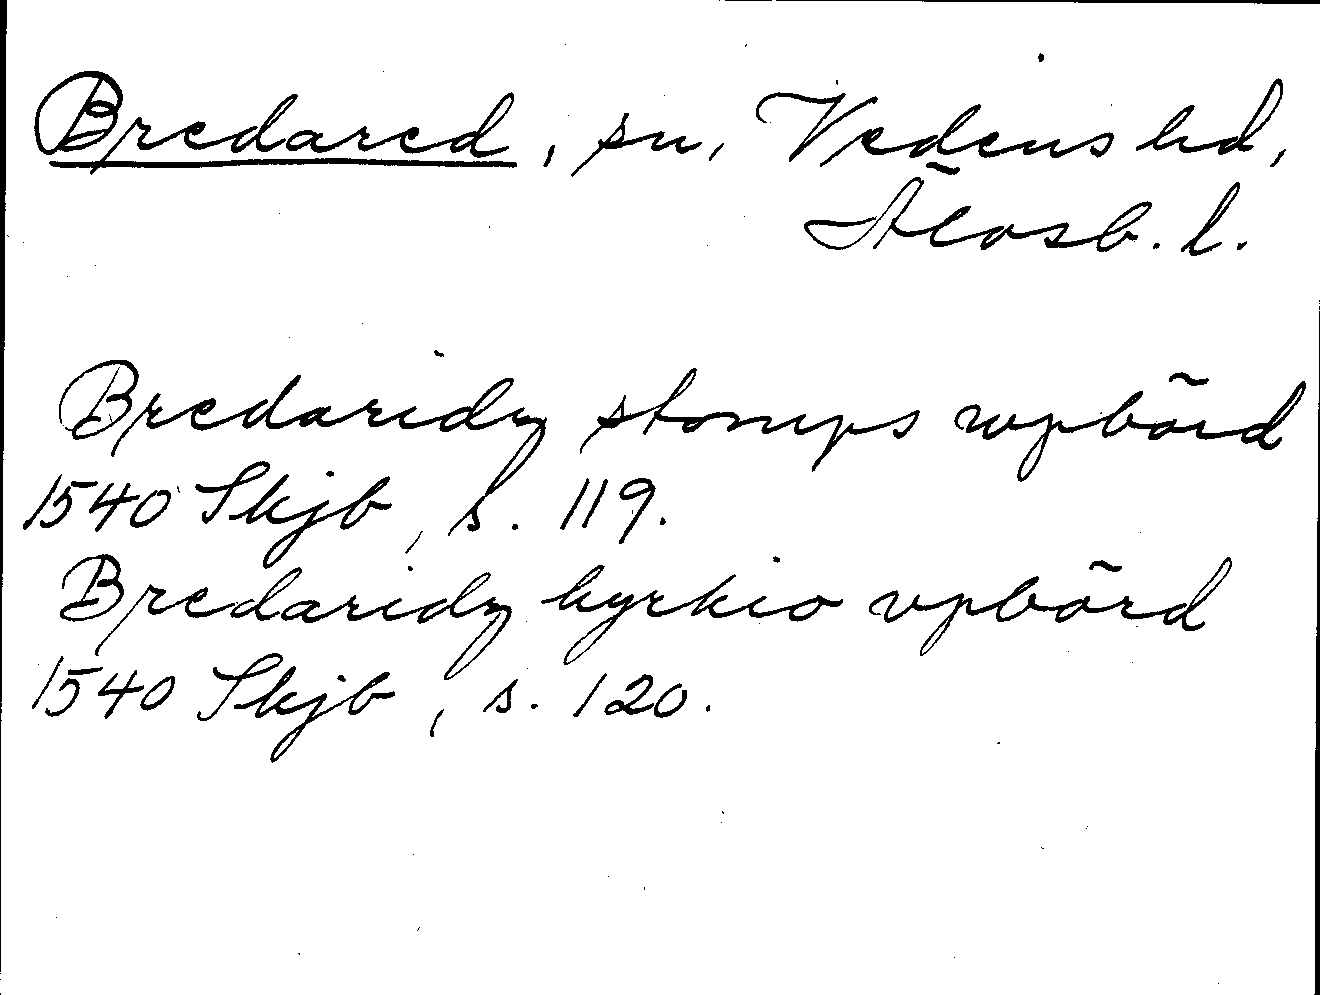 Bredared, sn, Vedens hd,
Älvsb. l.
Bredaridz stomps wpbörd
1540 Skjb, s. 119.
Bredaridz kyrkio vpbörd
1540 Skjb, s. 120.